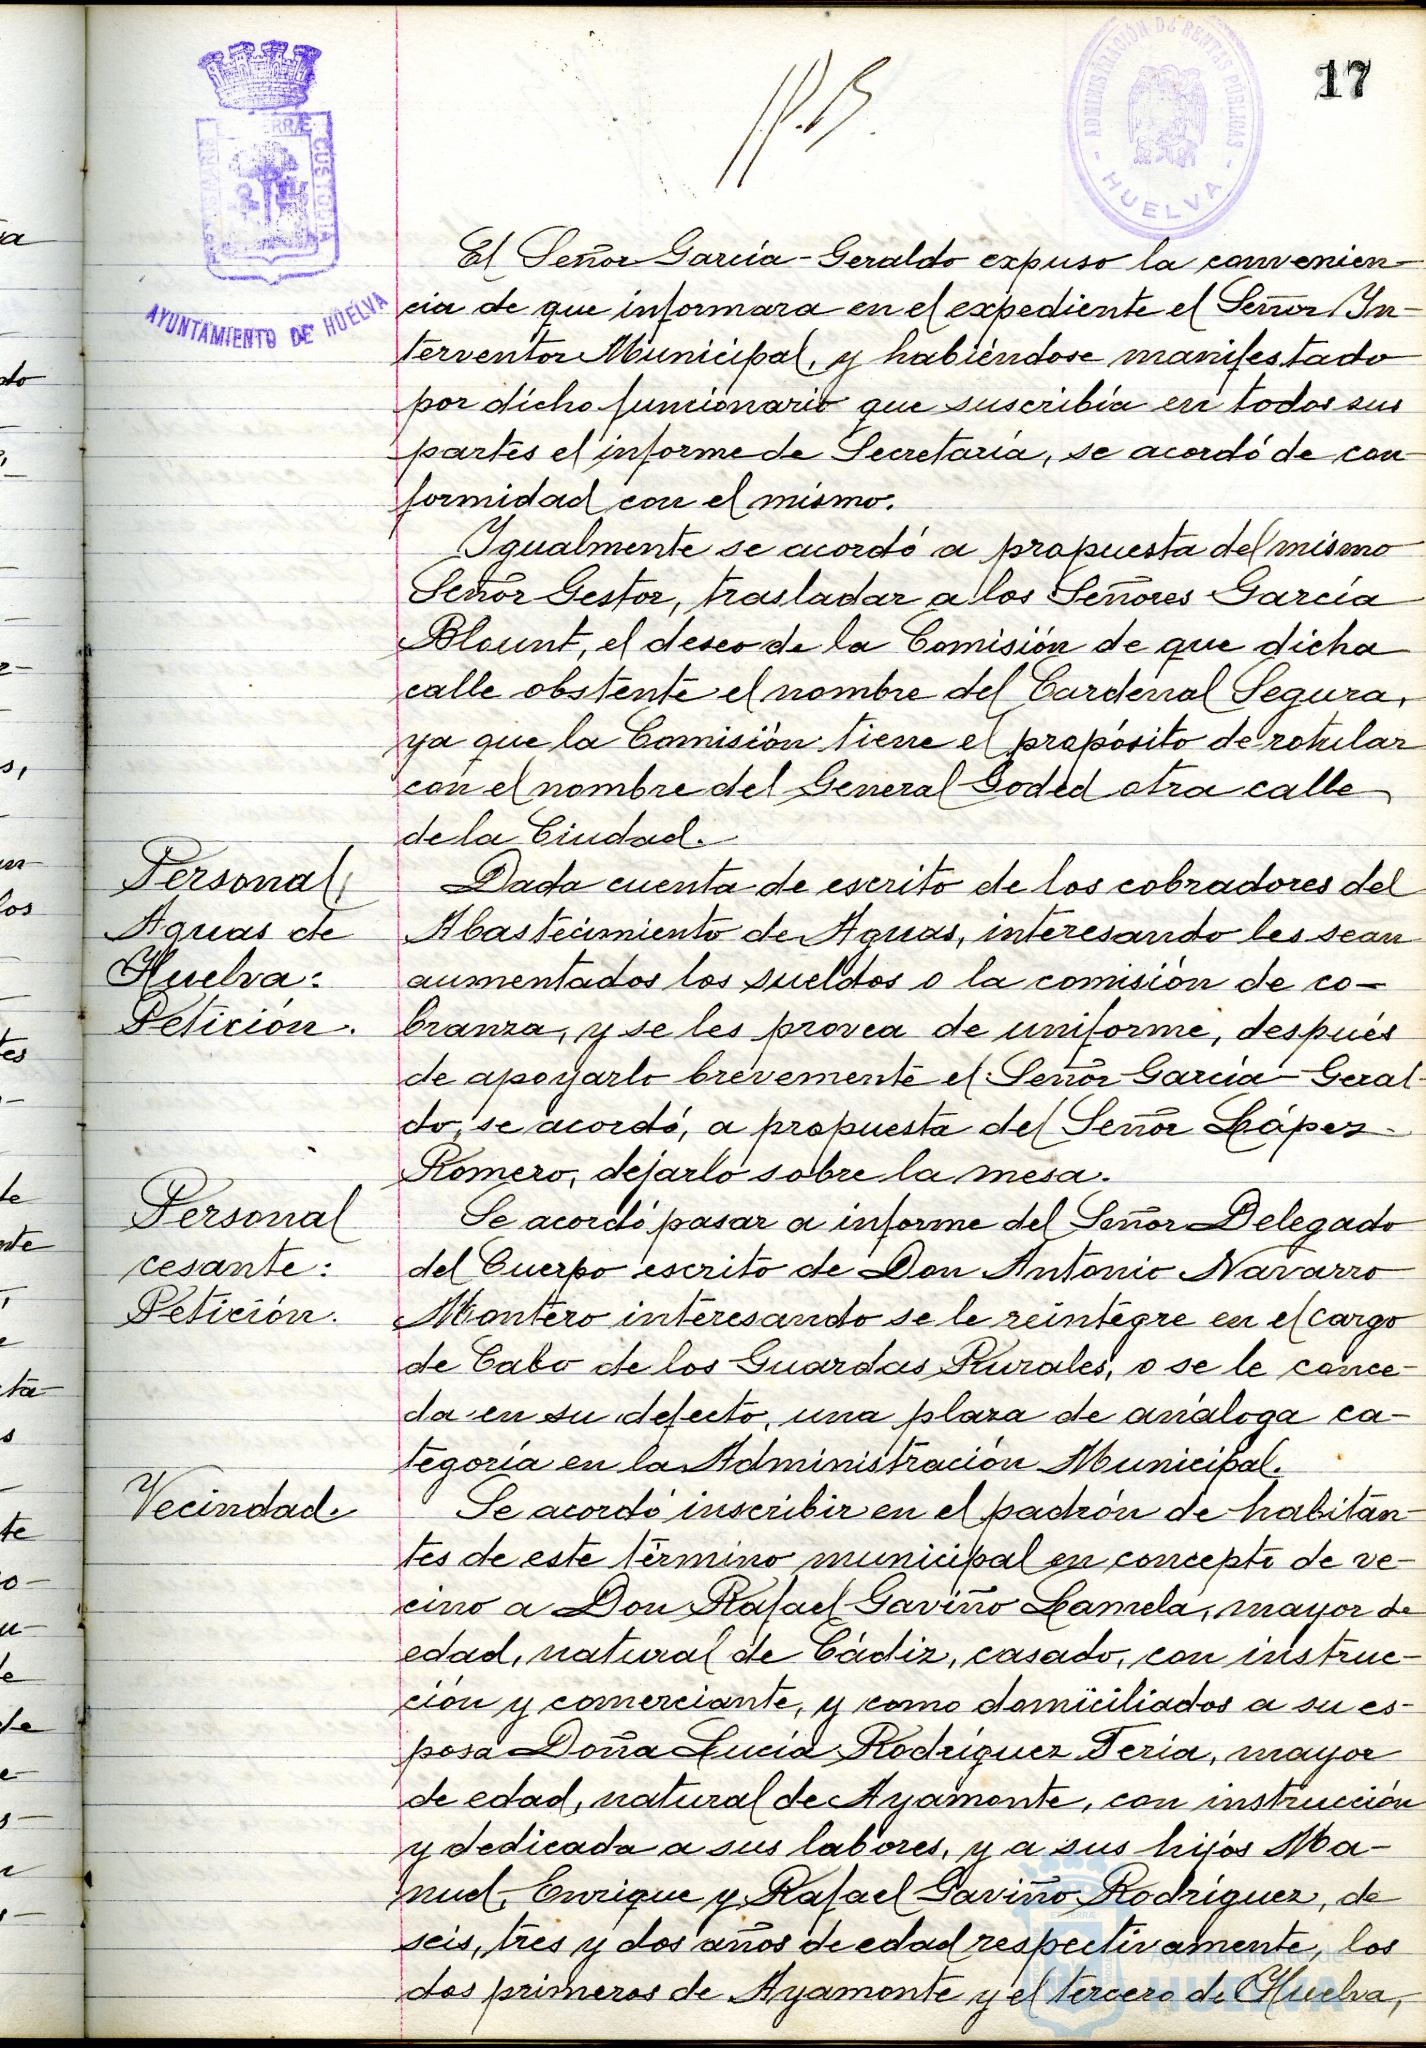 17
ADMINISTRACIÓN DE RENTAS PÚBLICAS
- HUELVA -
CUSTODIA
AYUNTAMIENTO DE HUELVA
El Señor García-Geraldo expuso la convenien-
cia de que informara en el expediente el Señor In-
terventor Municipal, y habiéndose manifestado
por dicho funcionario que suscribía en todas sus
partes el informe de Secretaría, se acordó de con-
formidad con el mismo.
Igualmente se acordó a propuesta del mismo
Señor Gestor, trasladar a los Señores García
Blount, el deseo de la Comisión de que dicha
calle obstente el nombre del Cardenal Segura,
ya que la Comisión tiene el propósito de rotular
con el nombre del General Goded otra calle
de la Ciudad.
Personal,
Aguas de
Huelva:
Petición.
Dada cuenta de escrito de los cobradores del
Abastecimiento de Aguas, interesando les sean
aumentados los sueldos o la comisión de co-
branza, y se les provea de uniforme, después
de apoyarlo brevemente el Señor García-Geral-
do, se acordó, a propuesta del Señor López
Romero, dejarlo sobre la mesa.
Personal
cesante:
Petición.
Se acordó pasar a informe del Señor Delegado
del Cuerpo escrito de Don Antonio Navarro
Montero interesando se le reintegre en el cargo
de Cabo de los Guardas Rurales, o se le conce-
da en su defecto, una plaza de análoga ca-
tegoría en la Administración Municipal.
Vecindad.
Se acordó inscribir en el padrón de habitan-
tes de este término municipal en concepto de ve-
cino a Don Rafael Gaviño Lamela, mayor de
edad, natural de Cádiz, casado, con instruc-
ción y comerciante, y como domiciliados a su es-
posa Doña Lucía Rodríguez Feria, mayor
de edad, natural de Ayamonte, con instrucción
y dedicada a sus labores, y a sus hijos Ma-
nuel, Enrique y Rafael Gaviño Rodríguez, de
seis, tres y dos años de edad respectivamente, los
dos primeros de Ayamonte y el tercero de Huelva,
Ayuntamiento de
HUELVA